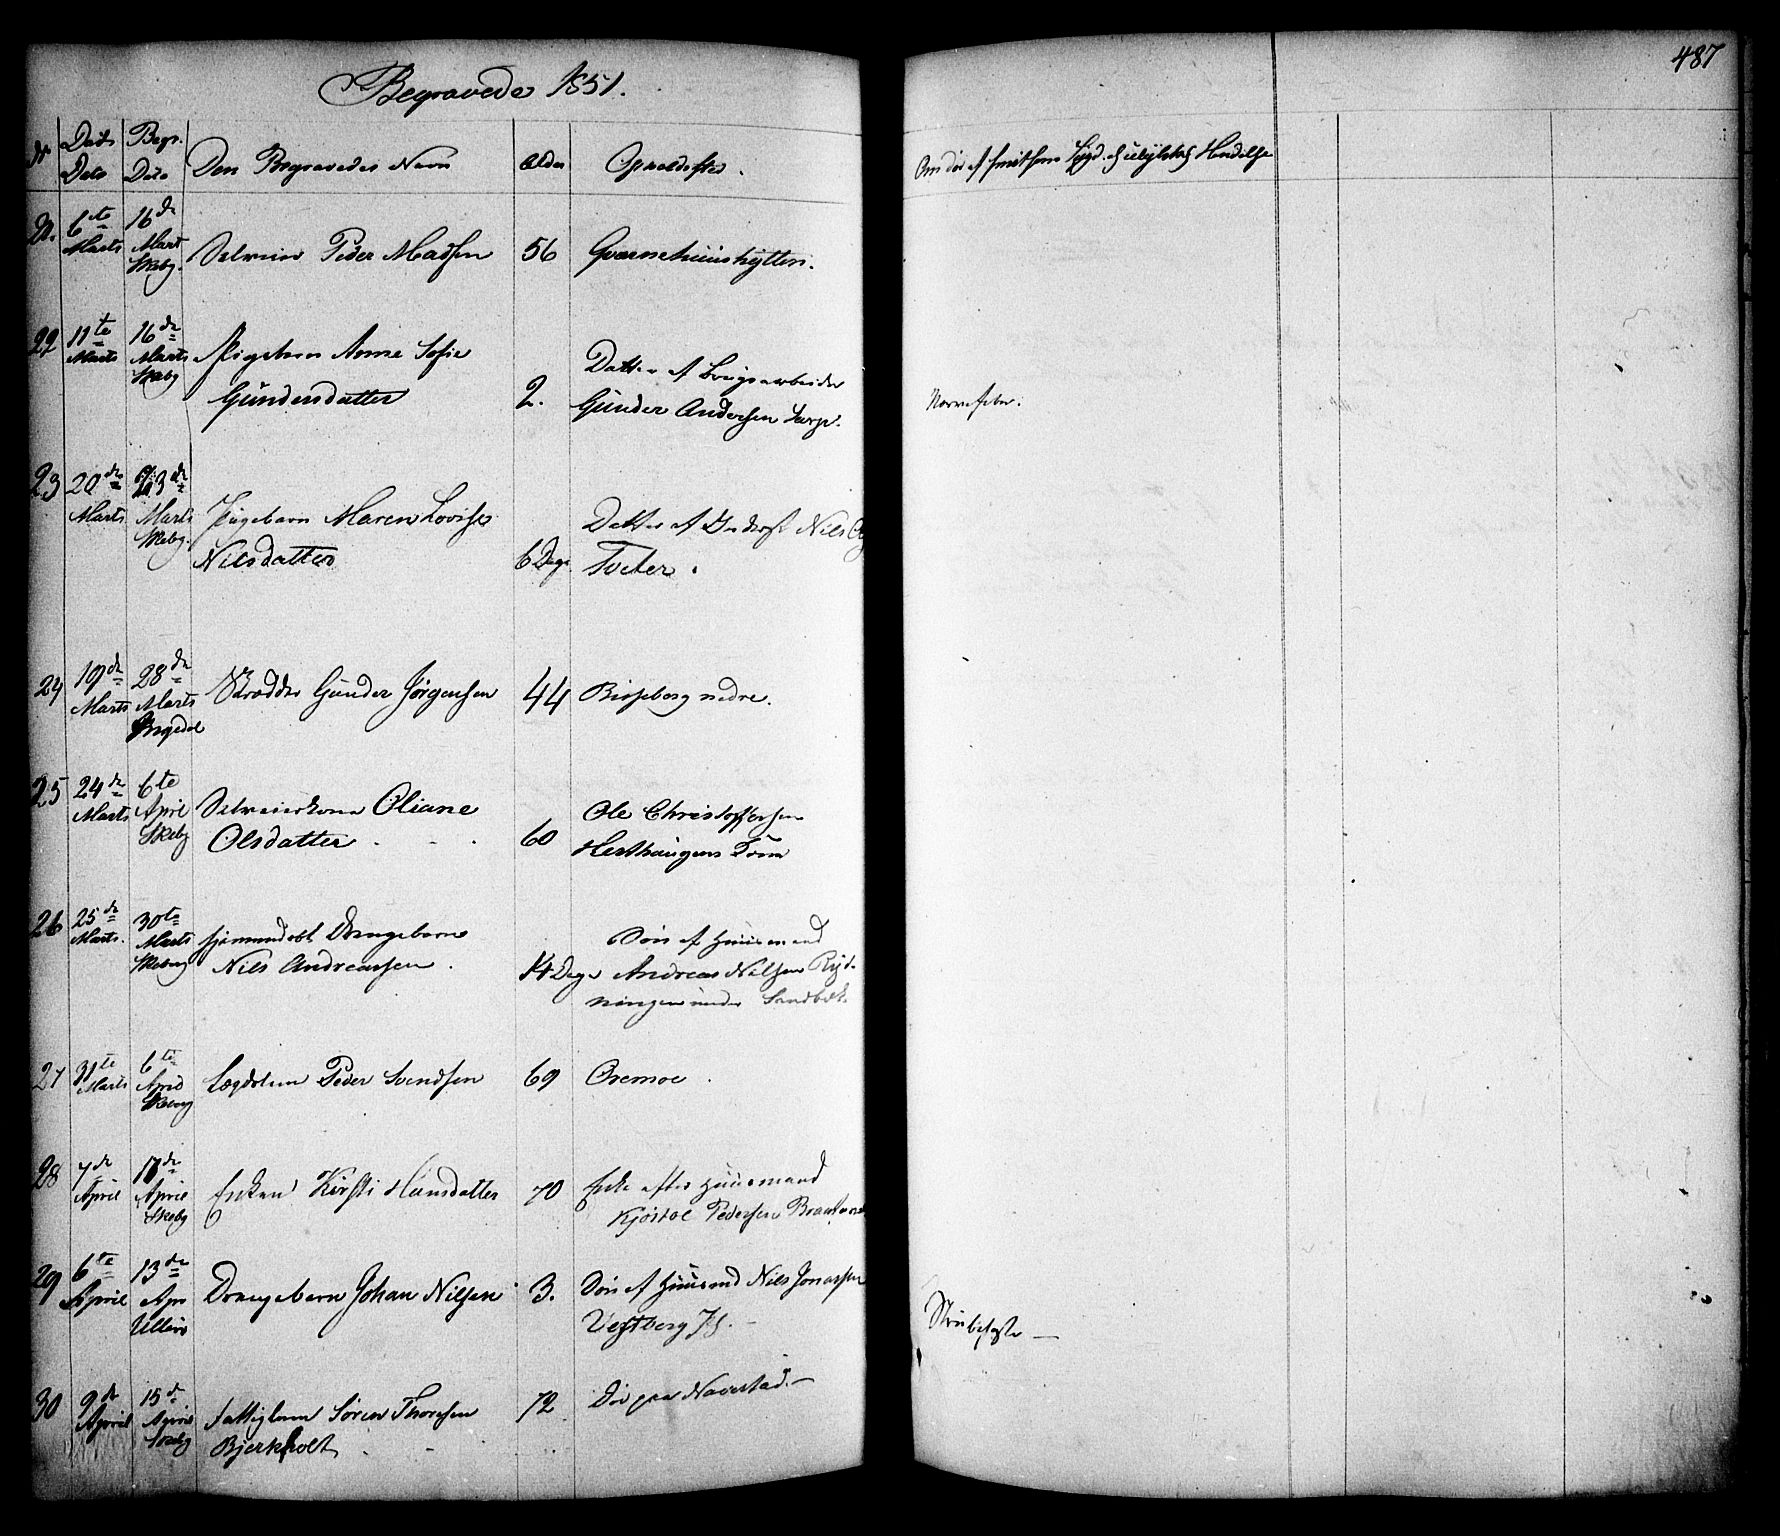 487
Begravede 1851.
Nr Døds Dato Begr. Dato Den Begravedes Navn Alder Opholdssted.
6te Marts 16de Mart Skebg. Selveier Peder Madsen 56 Qvernehuushytten.
22 11te Marts 16de Marts Skebg Pigebarn Anne Sofie
Gundersdatter 2. Datter af Brugsarbeider
Gunder Andersen Sarp. Nervefeber.
23 20de Marts 23de Marts Skebg. Pigebarn Maren Lovise
Nilsdatter 6 Dage Datter af Inderst Nils
Tveter.
24 19de Marts 28de Marts Skrædder Gunder Jørgensen 44 Bispeberg nedre.
25 24de Marts 6te April Skebg Selveierkone Oliane
Olsdatter 60 Ole Christoffersen
26 25de Marts. 30te Marts Skeberg hjemmedøbt Drengebarn
Nils Andreassen. 14 Dage Søn af Huusmand
Andreas Nilsen Ryd-
ningen under Sandbæk
27 31te Marts 6te April Skeberg Lægdslem Peder Svendsen 69 Oremoe.
28 7de April 17de April Skebg Enken Kirsti Hansdatter 70 Enke efter Huusmand
Kjøstol Pedersen
29 6te April 13de Apr Ullerø Drengebarn Johan Nilsen 3. Søn af Huusmd Nils Jonassen
Vestberg Strubehoste —
30 9de April 15de April Skebg Fattiglem Søren Thoresen
Bjerkholt 72 Død paa Navestad. —